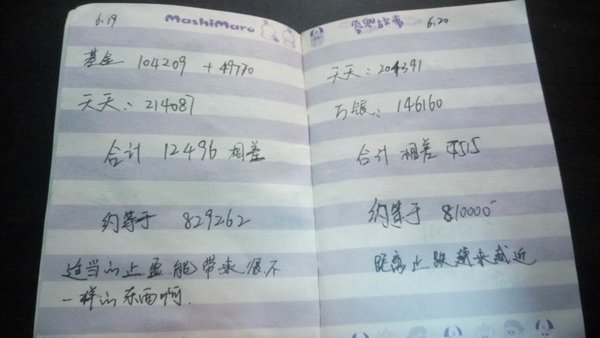 6.19
MashiMaro
基金 104209 + 49770
天天: 214087
合计 12496 相差
约等于 829262
适当的止盈能带来很不
一样的东西啊.
6.20
天天: 204391
146160
合计 相差
约等于 810000
距离止跌越来越近